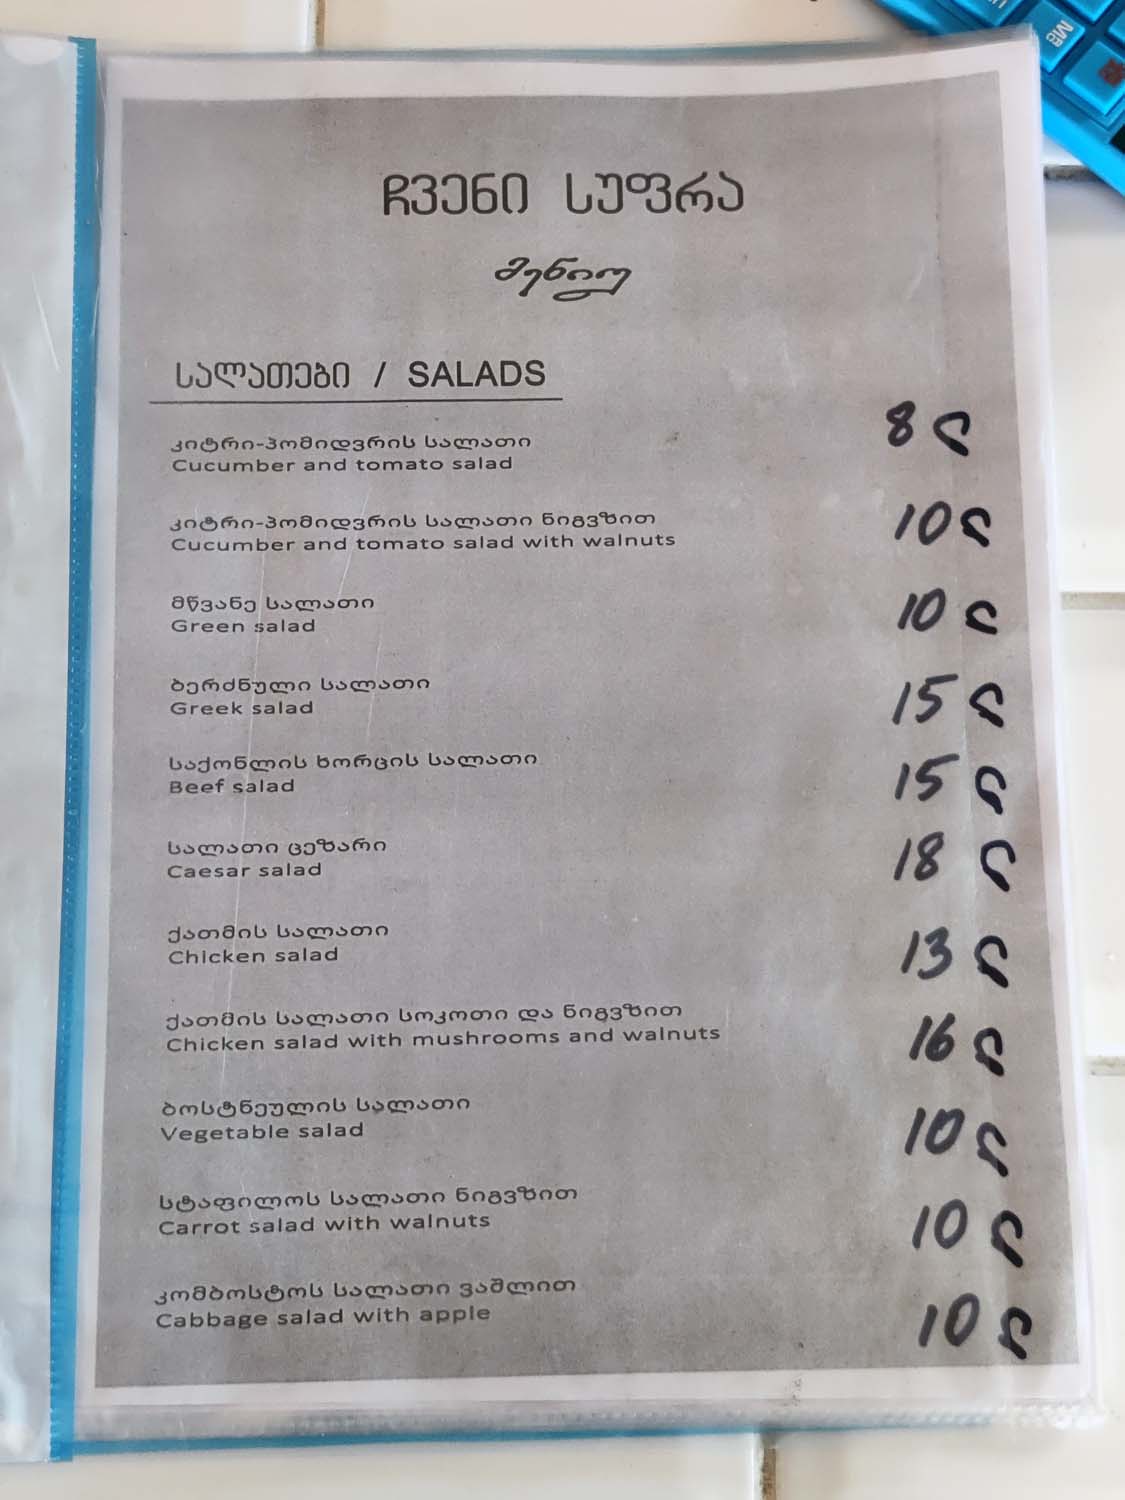 ჩვენი სუფრა
მენიუ
სალათები / SALADS
კიტრი-პომიდვრის სალათი
Cucumber and tomato salad
8 ლ
კიტრი-პომიდვრის სალათი ნიგვზით
Cucumber and tomato salad with walnuts
10 ლ
მწვანე სალათი
Green salad
10 ლ
ბერძნული სალათი
Greek salad
15 ლ
საქონლის ხორცის სალათი
Beef salad
15 ლ
სალათი ცეზარი
Caesar salad
18 ლ
ქათმის სალათი
Chicken salad
13 ლ
ქათმის სალათი სოკოთი და ნიგვზით
Chicken salad with mushrooms and walnuts
16 ლ
ბოსტნეულის სალათი
Vegetable salad
10 ლ
სტაფილოს სალათი ნიგვზით
Carrot salad with walnuts
10 ლ
კომბოსტოს სალათი ვაშლით
Cabbage salad with apple
10 ლ